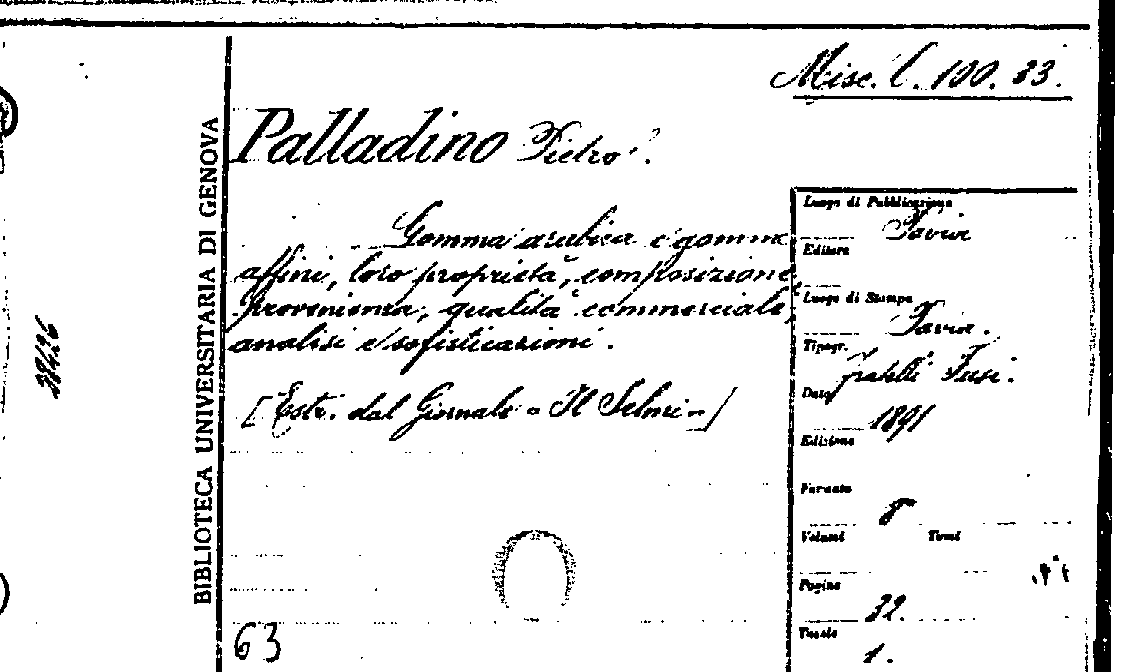 Misc. l. 100. 33.
BIBLIOTECA UNIVERSITARIA DI GENOVA
Palladino Pietro.
Gomma arabica e gomme
affini, loro proprietà, composizione,
provenienza, qualità commerciale,
analisi e sofisticazioni.
[Estr. dal Giornale "Il Selmi"]
63
Luogo di Pubblicazione
Pavia
Editore
Luogo di Stampa
Pavia.
Tipogr.
fratelli Fusi.
Data
1891
Edizione
Formato
8
Volumi Tomi
Pagine
32.
Tavole
1.